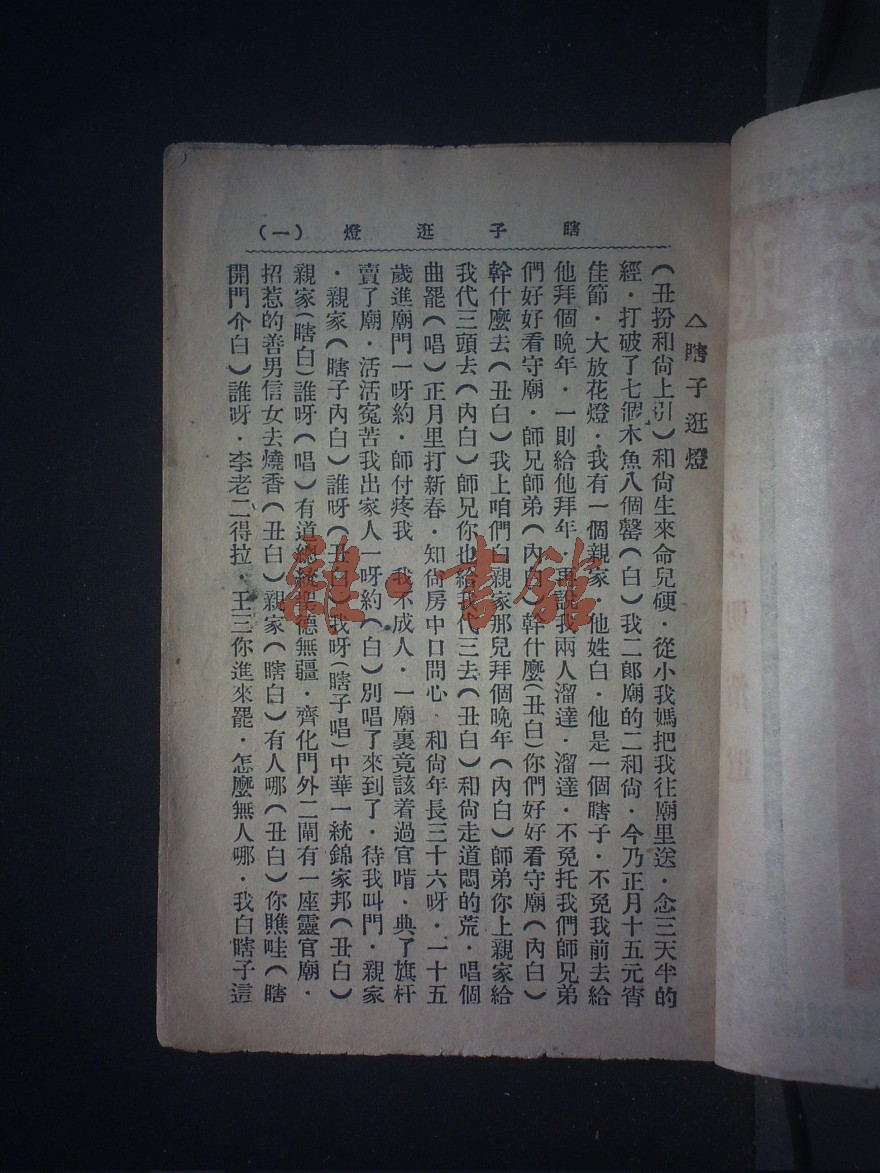 瞎子逛燈 （一）
△瞎子逛燈
（丑扮和尙上引）和尙生來命兒硬·從小我媽把我往廟里送·念三天半的
經·打破了七個木魚八個罄（白）我二郎廟的二和尙·今乃正月十五元宵
佳節·大放花燈·我有一個親家·他姓白·他是一個瞎子·不免我前去給
他拜個晚年·一則給他拜年·再說我兩人溜達·溜達·不免托我們師兄弟
們好好看守廟·師兄師弟（內白）幹什麼（丑白）你們好好看守廟（內白）
幹什麼去（丑白）我上咱們白親家那兒拜個晚年（內白）師弟你上親家給
我代三頭去（內白）師兄你也給我代三去（丑白）和尙走道悶的荒·唱個
曲罷（唱）正月里打新春·知尙房中口問心·和尙年長三十六呀·一十五
歲進廟門一呀約·師付疼我 我不成人·一廟裏竟該着過官啃·典了旗杆
賣了廟·活活寃苦我出家人一呀約（白）別唱了來到了·待我叫門·親家
·親家（瞎子內白）誰呀（丑白）我呀（瞎子唱）中華一統錦家邦（丑白）
親家（瞎白）誰呀（唱）有道總統把德無疆·齊化門外二閘有一座靈官廟·
招惹的善男信女去燒香（丑白）親家（瞎白）有人哪（丑白）你瞧哇（瞎
開門介白）誰呀·李老二得拉·王三你進來罷·怎麼無人哪·我白瞎子這
雜·書館